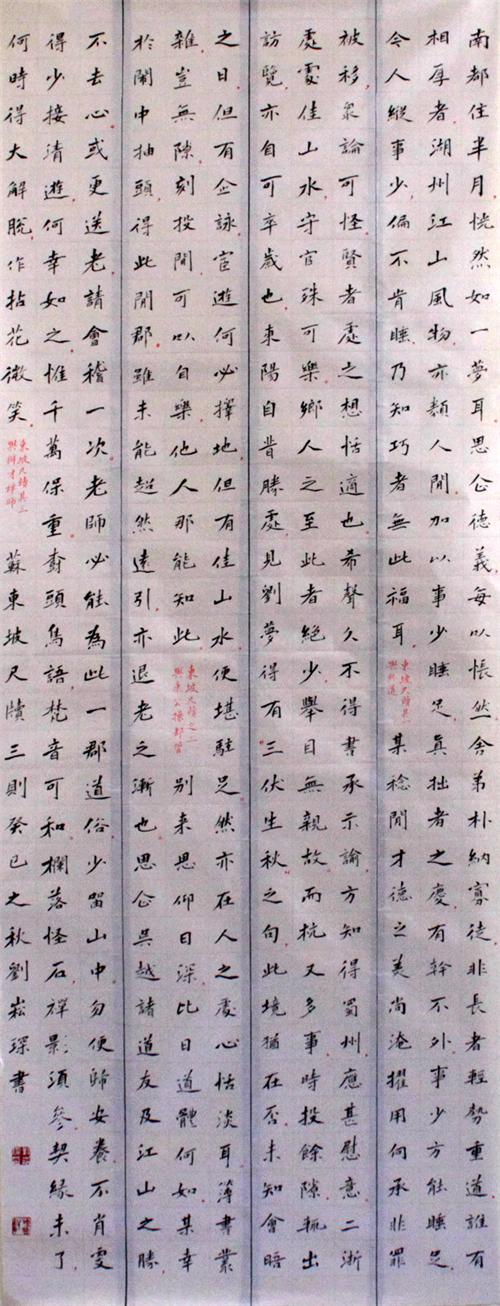 南都住半月恍然如一夢耳思企德義每以悵然舍弟朴納寡徒非長者輕勢重道誰有
相厚者湖州江山風物亦類人間加以事少睡足真拙者之慶有幹不外事少方能睡足
令人縱事少偏不肯睡乃知巧者無此福耳
東坡尺牘其一
某稔聞才德之美尚淹擢用何承非罪
被移衆論可怪賢者處之想恬適也希聲久不得書承示諭方知得蜀州應甚慰意二浙
處處佳山水守官殊可樂鄉人之至此者絕少舉目無親故而杭又多事時投餘隙輒出
訪覽亦自可卒歲也東陽自昔勝處見劉夢得有三伏生秋之句此境猶在否未知會晤
之日但有企詠宦遊何必擇地但有佳山水便堪駐足然亦在人之處心恬淡耳簿書叢
雜豈無隙刻投閒可以自樂他人那能知此
東坡尺牘之二
別來思仰日深比日道體何如某幸
於鬧中抽頭得此閒郡雖未能超然遠引亦退老之漸也思企吳越諸道友及江山之勝
不去心或更送老請會稽一次老師必能為此一郡道俗少留山中勿便歸安養不肖雯
得少接清遊何幸如之惟千萬保重頭鳥語梵音可和欄落怪石禪影須參契緣未了
何時得大解脫作拈花微笑
東坡尺牘其三
與辨才禪師
蘇東坡尺牘三則癸巳之秋劉崧琛書